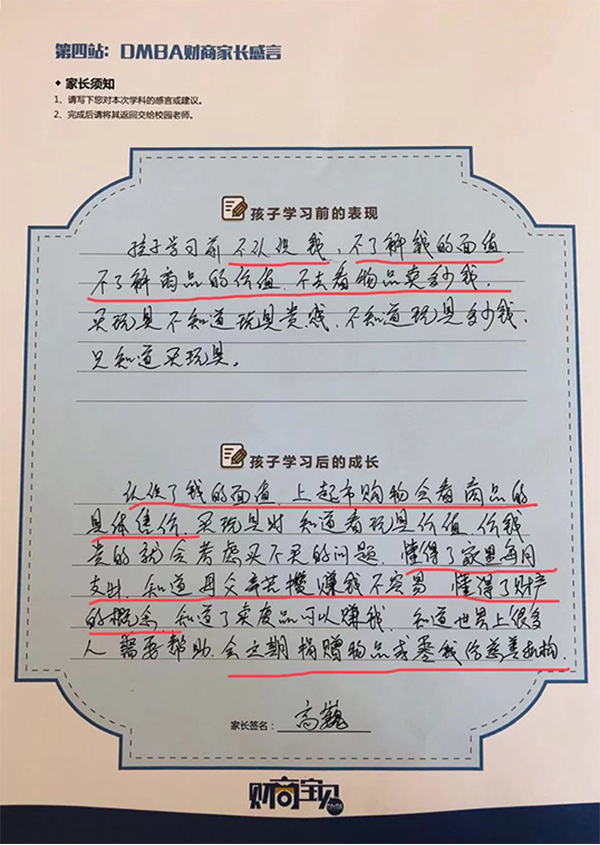 第四站：DMBA财商家长感言
◆ 家长须知
1、请写下您对本次学科的感言或建议。
2、完成后请将其返回交给校园老师。
孩子学习前的表现
孩子学习前 不认识钱，不了解钱的面值，
不了解商品的价值，不去看物品卖多少钱，
买玩具不知道玩具贵贱，不知道玩具多少钱，
只知道买玩具。
孩子学习后的成长
认识了钱的面值，上超市购物会看商品的
具体售价，买玩具时知道看玩具价值，价钱
贵的就会考虑买不买的问题，懂得了家里每月
支出，知道母父辛苦攒赚钱不容易 懂得了财产
的概念，知道了卖废品可以赚钱，知道世界上很多
人需要帮助，会定期捐赠物品或零钱给慈善机构。
家长签名：高巍
财商宝贝